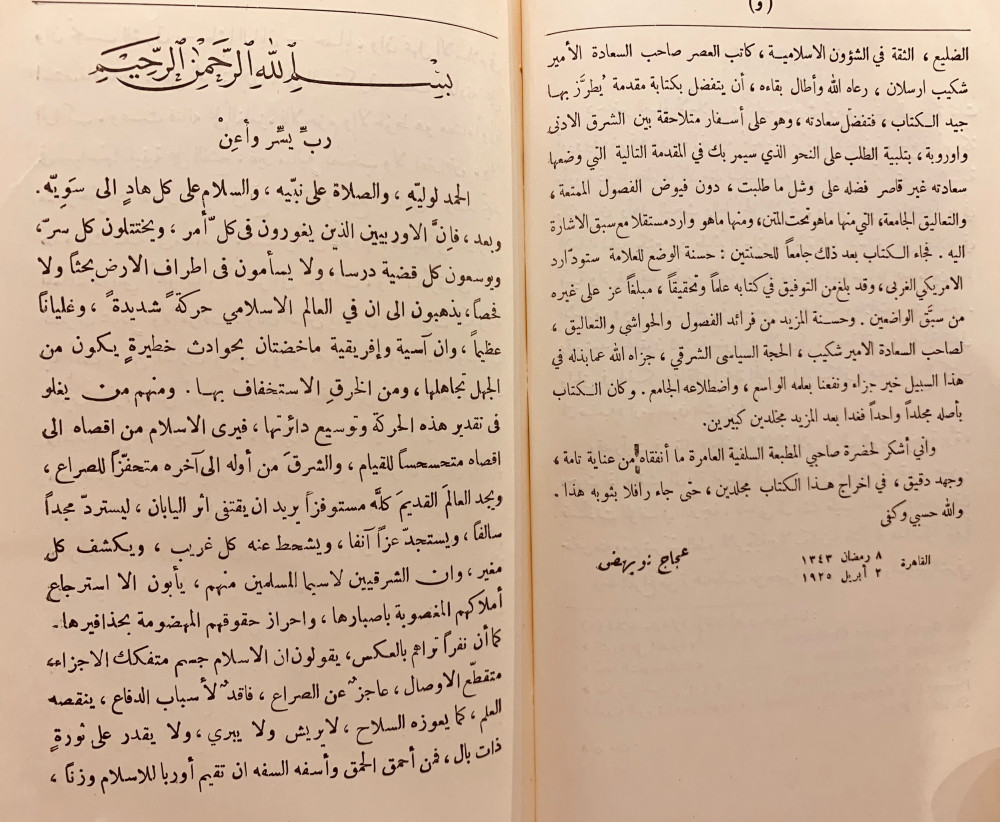 (و)
الضليع ، الثقة في الشؤون الاسلامية ، كاتب العصر صاحب السعادة الأمير
شكيب ارسلان ، رعاه الله وأطال بقاءه ، أن يتفضل بكتابة مقدمة يُطرَّز بها
جيد الكتاب ، فتفضل سعادته ، وهو على أسفار متلاحقة بين الشرق الادنى
واوروبة ، بتلبية الطلب على النحو الذي سيمر بك في المقدمة التالية التي وضعها
سعادته غير قاصر فضله على وشل ما طلبت ، دون فيوض الفصول الممتعة ،
والتعاليق الجامعة، التي منها ماهو تحت المتن، ومنها ماهو وارد مستقلا مع سبق الاشارة
اليه . فجاء الكتاب بعد ذلك جامعاً للحسنتين : حسنة الوضع للعلامة ستودّارد
الامريكي الغربي، وقد بلغ من التوفيق في كتابه علماً وتحقيقاً ، مبلغاً عز على غيره
من سبَّق الواضعين . وحسنة المزيد من فرائد الفصول والحواشي والتعاليق ،
لصاحب السعادة الامير شكيب ، الحجة السياسى الشرقي ، جزاه الله عما بذله في
هذا السبيل خير جزاء ونفعنا بعلمه الواسع ، واضطلاعه الجامع . وكان الكتاب
بأصله مجلداً واحداً فغدا بعد المزيد مجلدين كبيرين.
واني أشكر لحضرة صاحبي المطبعة السلفية العامرة ما أنفقاه من عناية تامة ،
وجهد دقيق ، في اخراج هذا الكتاب مجلدين ، حتى جاء رافلا بثوبه هذا .
والله حسبي وكفى
القاهرة ٨ رمضان ١٣٤٣
٢ أبريل ١٩٢٥
عجاج نويهض
بسم الله الرحمن الرحيم
ربِّ يسِّر وأعِنْ
الحمد لوليّهِ ، والصلاة على نبيّه ، والسلام على كل هادٍ الى سَوِيّه .
وبعد ، فإنَّ الاوربيين الذين يغورون فى كلّ أمر ، ويختتلون كل سرّ ،
ويوسعون كل قضية درسا ، ولا يسأمون فى اطراف الارض بحثاً ولا
فحصاً، يذهبون الى ان في العالم الاسلامي حركةً شديدةً ، وغلياناً
عظيماً ، وان آسية وإفريقية ماخضتان بحوادث خطيرةٍ يكون من
الجهل تجاهلها ، ومن الخرقِ الاستخفاف بها . ومنهم من يغلو
فى تقدير هذه الحركة وتوسيع دائرتها ، فيرى الاسلام من اقصاه الى
اقصاه متحسحساً للقيام ، والشرقَ من أوله الى آخره متحفّزاً للصراع ،
ويجد العالمَ القديمَ كلَّه مستوفزاً يريد ان يقتفى أثر اليابان ، ليستردّ مجداً
سالفاً ، ويستجدّ عزاً آنفا ، ويشحط عنه كل غريب ، ويكشف كل
مغير ، وان الشرقيين لاسيما المسلمين منهم ، يأبون الا استرجاع
أملاكهم المغصوبة باصبارها ، واحراز حقوقهم المهضومة بحذافيرها .
كما أن نفراً تراهم بالعكس، يقولون ان الاسلام جسم متفكك الاجزاء ،
متقطّع الاوصال ، عاجزٌ عن الصراع ، فاقدٌ لأسباب الدفاع ، ينقصه
العلم ، كما يعوزه السلاح ، لا يريش ولا يبري ، ولا يقدر على ثورةٍ
ذات بال ، فمن أحمق الحمق وأسفه السفه ان تقيم أوربا للاسلام وزناً ،